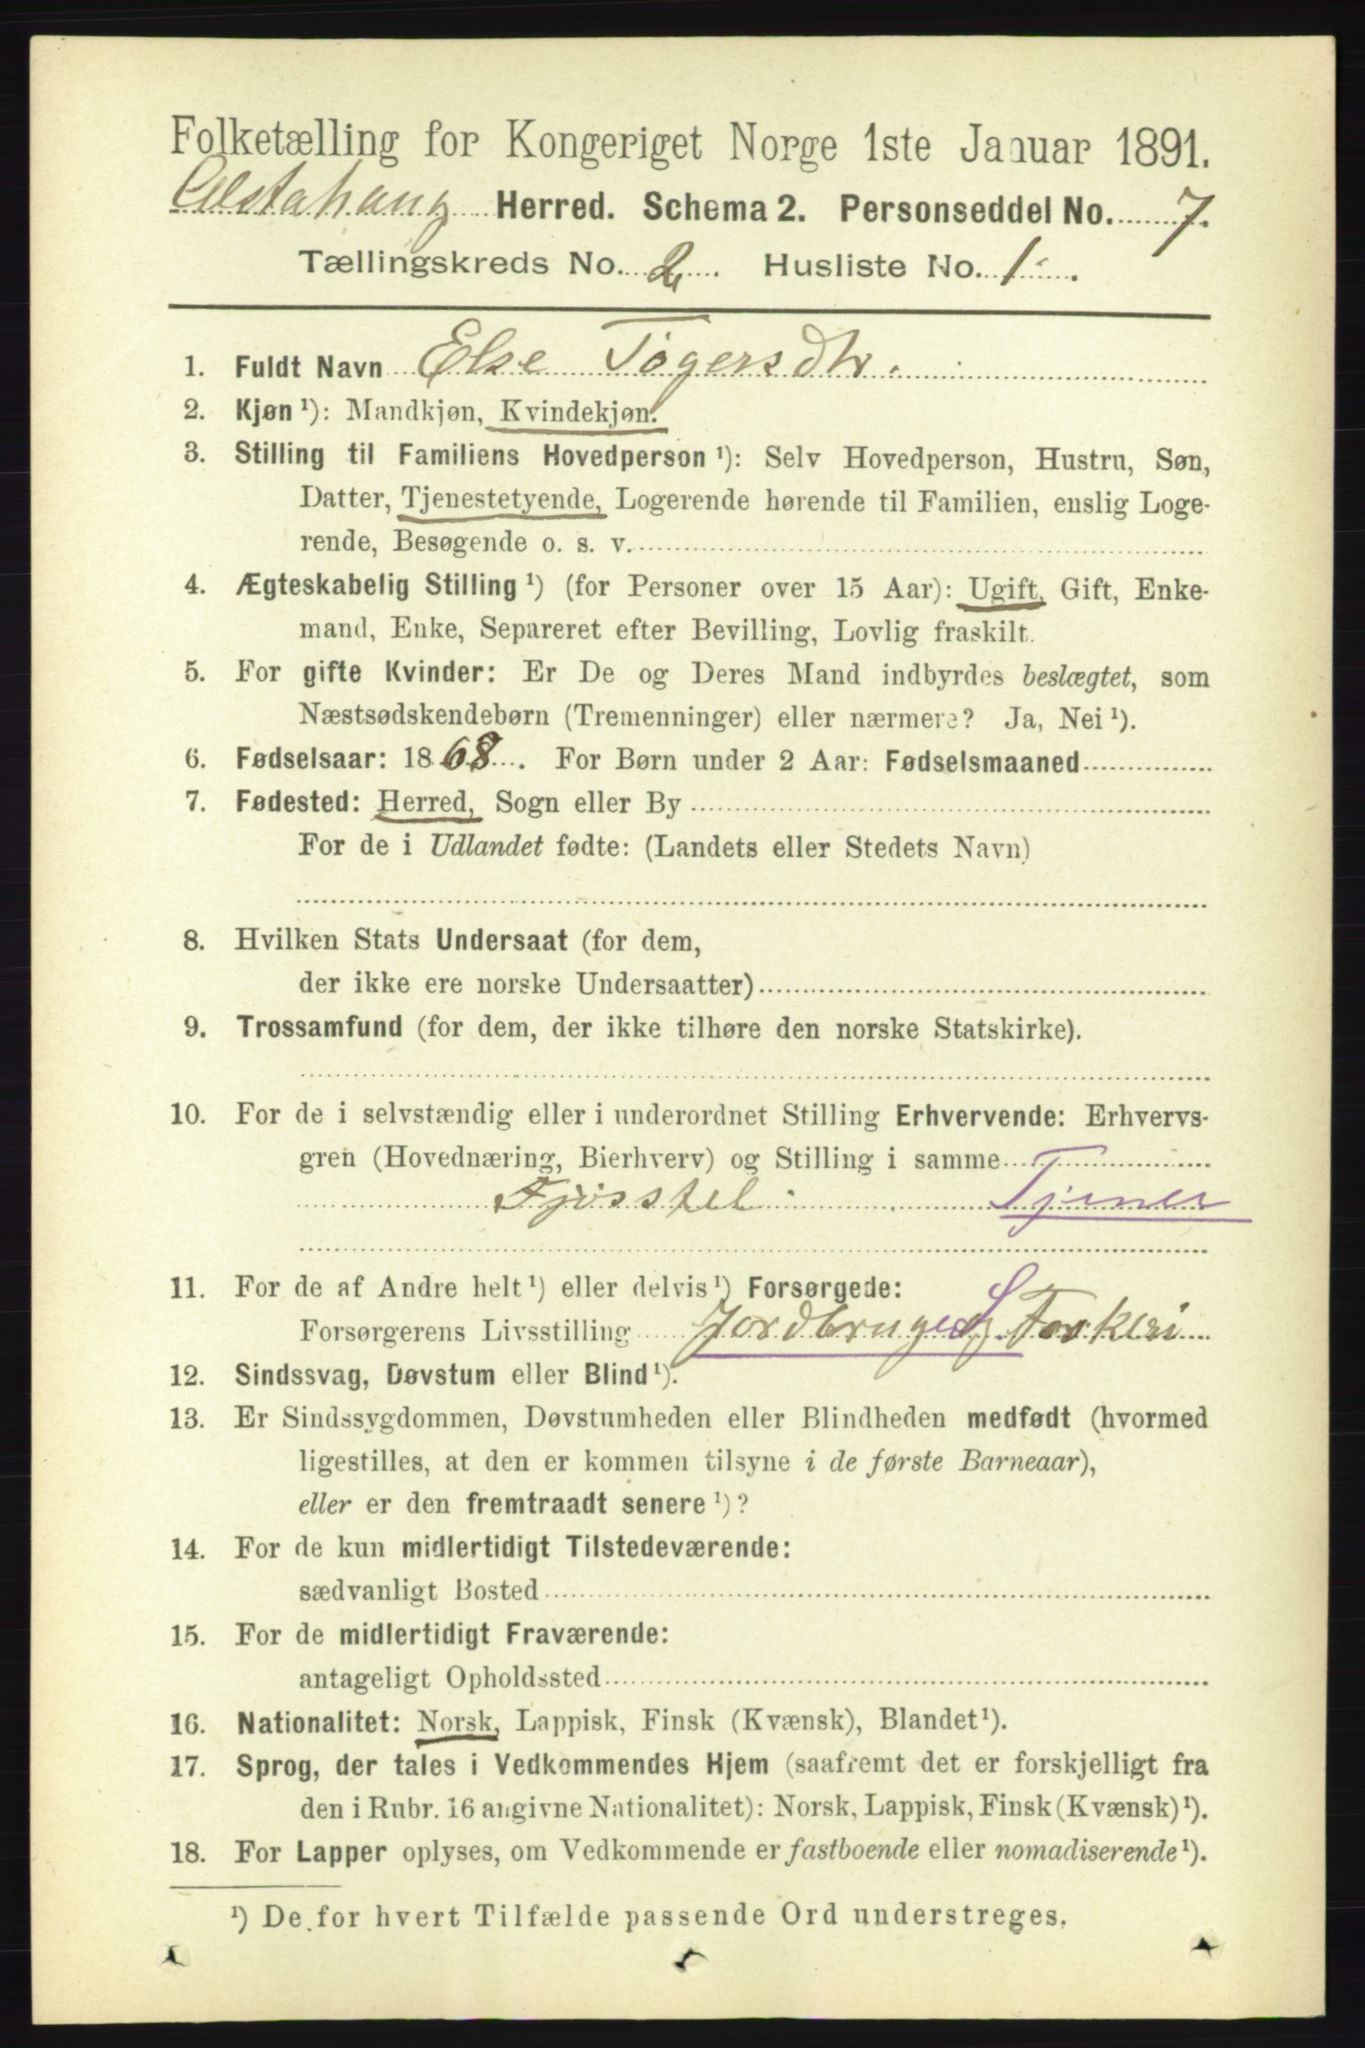 Folketælling for Kongeriget Norge 1ste Januar 1891.
Alstahaug Herred. Schema 2. Personseddel No. 7.
Tællingskreds No. 2. Husliste No. 1.
1. Fuldt Navn Else Togersdtr.
2. Kjøn ¹): Mandkjøn, Kvindekjøn.
3. Stilling til Familiens Hovedperson ¹): Selv Hovedperson, Hustru, Søn,
Datter, Tjenestetyende, Logerende hørende til Familien, enslig Loge-
rende, Besøgende o. s. v.
4. Ægteskabelig Stilling ¹) (for Personer over 15 Aar): Ugift, Gift, Enke-
mand, Enke, Separeret efter Bevilling, Lovlig fraskilt.
5. For gifte Kvinder: Er De og Deres Mand indbyrdes beslægtet, som
Næstsødskendebørn (Tremenninger) eller nærmere? Ja, Nei ¹).
6. Fødselsaar: 1868. For Børn under 2 Aar: Fødselsmaaned
7. Fødested: Herred, Sogn eller By
For de i Udlandet fødte: (Landets eller Stedets Navn)
8. Hvilken Stats Undersaat (for dem,
der ikke ere norske Undersaatter)
9. Trossamfund (for dem, der ikke tilhøre den norske Statskirke).
10. For de i selvstændig eller i underordnet Stilling Erhvervende: Erhvervs-
gren (Hovednæring, Bierhverv) og Stilling i samme
Fjøsstel Tjener
11. For de af Andre helt ¹) eller delvis ¹) Forsørgede:
Forsørgerens Livsstilling Jordbrug
12. Sindssvag, Døvstum eller Blind ¹).
13. Er Sindssygdommen, Døvstumheden eller Blindheden medfødt (hvormed
ligestilles, at den er kommen tilsyne i de første Barneaar),
eller er den fremtraadt senere ¹)?
14. For de kun midlertidigt Tilstedeværende:
sædvanligt Bosted
15. For de midlertidigt Fraværende:
antageligt Opholdssted
16. Nationalitet: Norsk, Lappisk, Finsk (Kvænsk), Blandet ¹).
17. Sprog, der tales i Vedkommendes Hjem (saafremt det er forskjelligt fra
den i Rubr. 16 angivne Nationalitet): Norsk, Lappisk, Finsk (Kvænsk) ¹).
18. For Lapper oplyses, om Vedkommende er fastboende eller nomadiserende ¹).
¹) De for hvert Tilfælde passende Ord understreges.